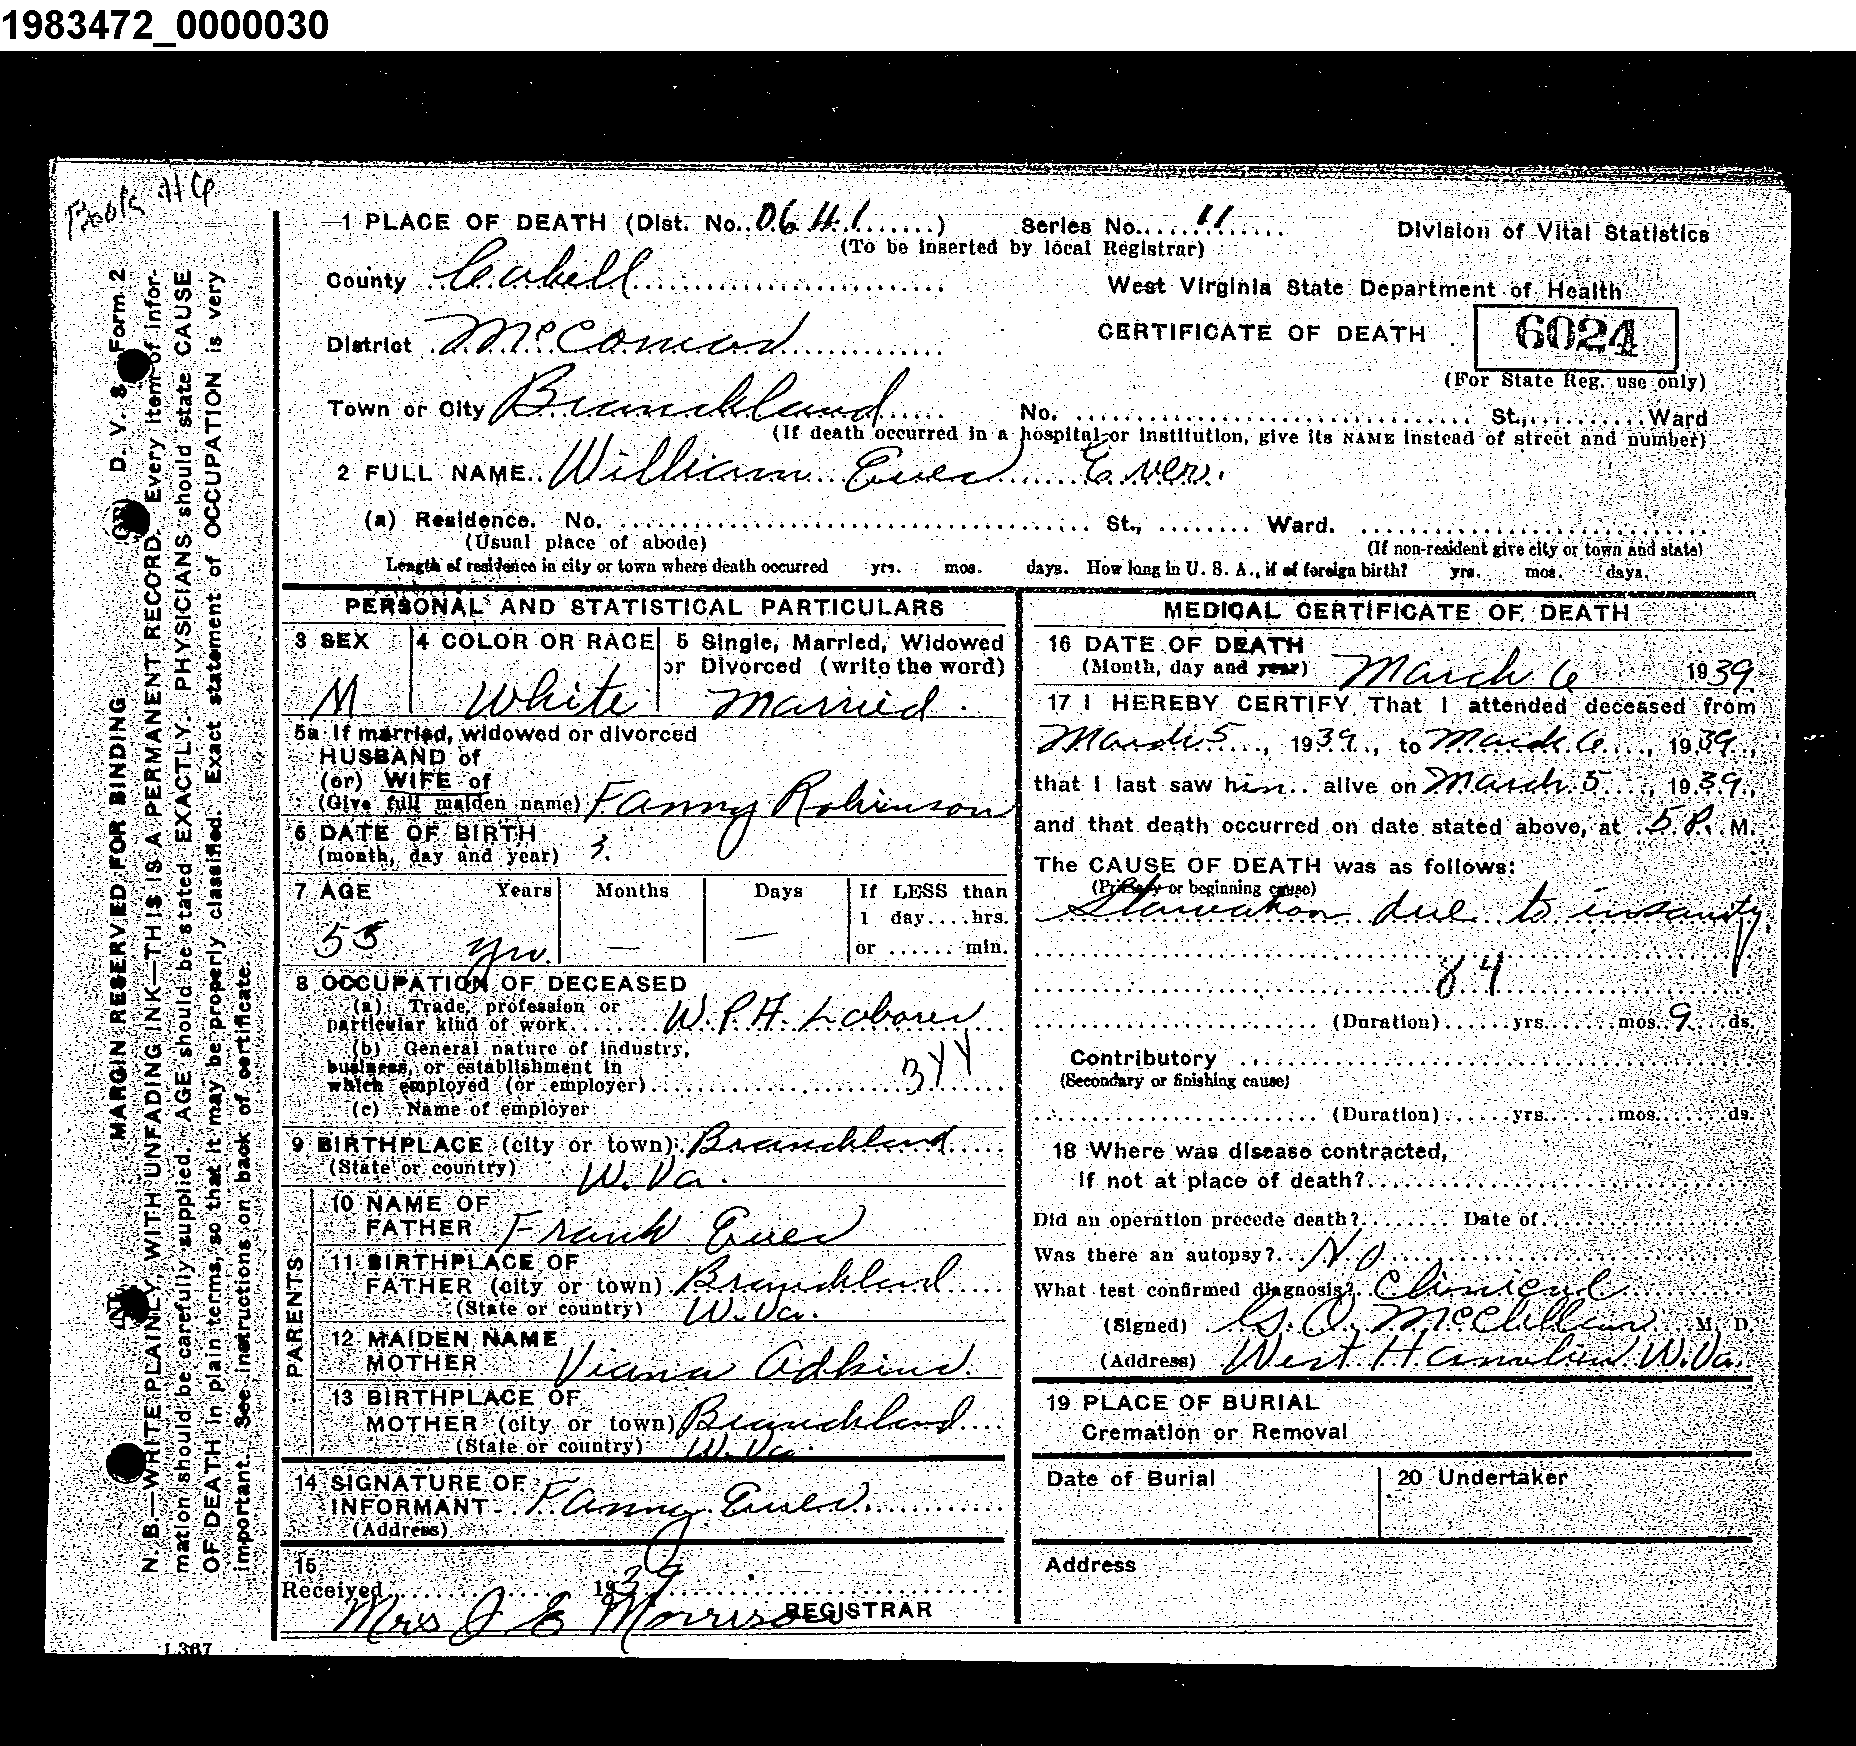 1983472_0000030
Books H Cp
1 PLACE OF DEATH (Dist. No. 0641 ) Series No. 11 Division of Vital Statistics
(To be inserted by local Registrar)
County Cabell West Virginia State Department of Health
District McComas CERTIFICATE OF DEATH 6024
(For State Reg. use only)
Town or City Branchland No. St., Ward
(If death occurred in a hospital or institution, give its NAME instead of street and number)
2 FULL NAME William Eves Eves.
(a) Residence. No. St., Ward.
(Usual place of abode) (If non-resident give city or town and state)
Length of residence in city or town where death occurred yrs. mos. days. How long in U. S. A., if of foreign birth? yrs. mos. days.
PERSONAL AND STATISTICAL PARTICULARS
3 SEX 4 COLOR OR RACE 5 Single, Married, Widowed
or Divorced (write the word)
M White Married.
5a If married, widowed or divorced
HUSBAND of
(or) WIFE of
(Give full maiden name) Fanny Robinson
6 DATE OF BIRTH
(month, day and year)
7 AGE Years Months Days If LESS than
1 day....hrs.
55 yrs. — — or ...... min.
8 OCCUPATION OF DECEASED
(a) Trade, profession or
particular kind of work W.P.A. Laborer
(b) General nature of industry,
business, or establishment in
which employed (or employer) 3YY
(c) Name of employer
9 BIRTHPLACE (city or town) Branchland
(State or country) W. Va.
PARENTS
10 NAME OF
FATHER Frank Eves
11 BIRTHPLACE OF
FATHER (city or town) Branchland
(State or country) W. Va.
12 MAIDEN NAME
MOTHER Viana Adkins.
13 BIRTHPLACE OF
MOTHER (city or town) Branchland
(State or country) W. Va.
14 SIGNATURE OF
INFORMANT Fanny Eves
(Address)
15
Received 1939
Mrs J E Morrison REGISTRAR
MEDICAL CERTIFICATE OF DEATH
16 DATE OF DEATH
(Month, day and year) March 6 1939
17 I HEREBY CERTIFY That I attended deceased from
March 5, 1939, to March 6, 1939,
that I last saw him alive on March 5, 1939,
and that death occurred on date stated above, at 5 P. M.
The CAUSE OF DEATH was as follows:
(Primary or beginning cause)
Starvation due to insanity
84
(Duration) yrs. mos. 9 ds.
Contributory
(Secondary or finishing cause)
(Duration) yrs. mos. ds.
18 Where was disease contracted,
if not at place of death?
Did an operation precede death? Date of
Was there an autopsy? No
What test confirmed diagnosis? Clinical
(Signed) G. O. McClellan M. D.
(Address) West Hamlin W. Va.
19 PLACE OF BURIAL
Cremation or Removal
Date of Burial 20 Undertaker
Address
D. V. S. Form 2
MARGIN RESERVED FOR BINDING
N. B.—WRITE PLAINLY, WITH UNFADING INK—THIS IS A PERMANENT RECORD. Every item of infor-
mation should be carefully supplied. AGE should be stated EXACTLY. PHYSICIANS should state CAUSE
OF DEATH in plain terms, so that it may be properly classified. Exact statement of OCCUPATION is very
important. See instructions on back of certificate.
L367